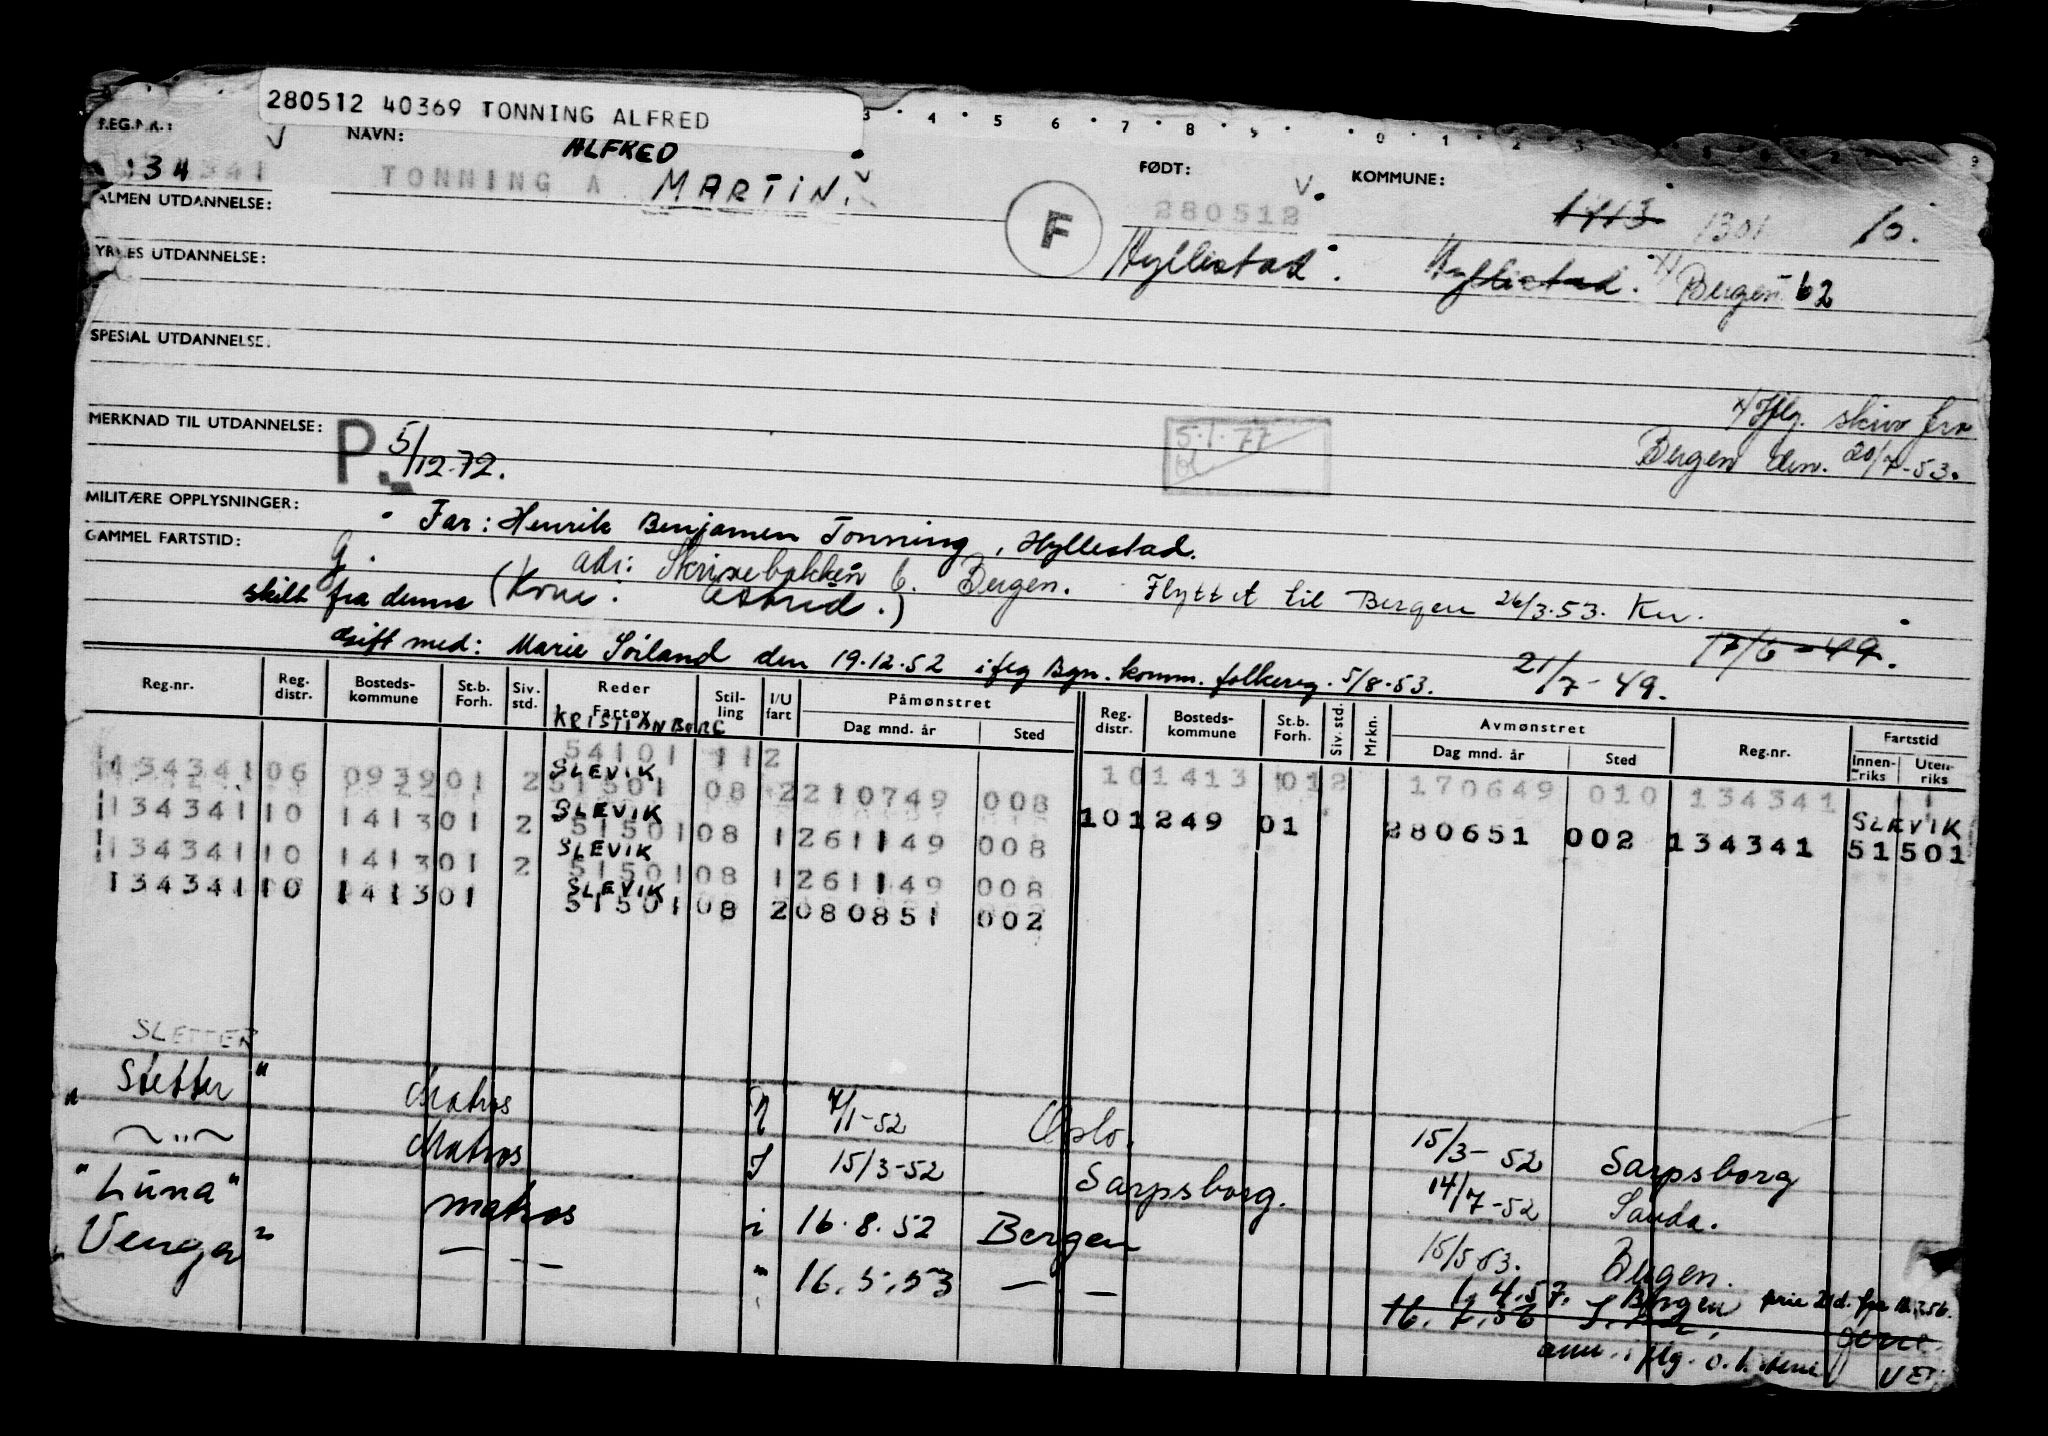 280512 40369 TONNING ALFRED
3 · 4 · 5 · 6 · 7 · 8 · 9 · · 0 · 1 · 2
REG.NR.:
NAVN:
ALFRED
FØDT:
KOMMUNE:
134341
TONNING A MARTIN.
F
280512
1413 1301 10.
ALMEN UTDANNELSE:
Hyllestad. Hyllestad. x) Bergen 62
YRKES UTDANNELSE:
SPESIAL UTDANNELSE:
x) Iflg. skriv fra
MERKNAD TIL UTDANNELSE:
P. 5/12-72.
5.1.77
Bergen den. 20/7-53.
MILITÆRE OPPLYSNINGER:
Far: Henrik Benjamen Tonning, Hyllestad.
GAMMEL FARTSTID:
g. adr: 6. Bergen. Flyttet til Bergen 26/3.53.
skilt fra denne (Kone: Astrid.)
17/6-49.
gift med: Marie Soiland den 19.12.52 iflg Bgn. komm. folkereg. 5/8-53. 21/7-49.
Reg.nr. Reg. distr. Bosteds- kommune St.b. Forh. Siv. std. Reder Fartøy Stil- ling I/U fart Påmønstret Dag mnd. år Sted Reg. distr. Bosteds- kommune St.b. Forh. Siv. std. Mrkn. Avmønstret Dag mnd. år Sted Reg.nr. Fartstid Innen- riks Uten- riks
KRISTIANBORG
54101 112
134341 06 0939 01 2 SLEVIK 51501 08 2 210749 008 10 1413 01 2 170649 010 134341
134341 10 1413 01 2 SLEVIK 51501 08 1 261149 008 10 1249 01 280651 002 134341 SLEVIK 51501
134341 10 1413 01 2 SLEVIK 51501 08 1 261149 008
134341 10 1413 01 SLEVIK 51501 08 2 080851 002
SLETTER
"Sletter" Matros 7/1-52 Oslo. 15/3-52 Sarpsborg
— " — Matros I 15/3-52 Sarpsborg. 14/7-52 Sauda.
"Luna" matros i 16.8.52 Bergen 15/5-53. Bergen.
"Venger" — — " 16.5.53 — — 4.57. Bergen
16.7.56